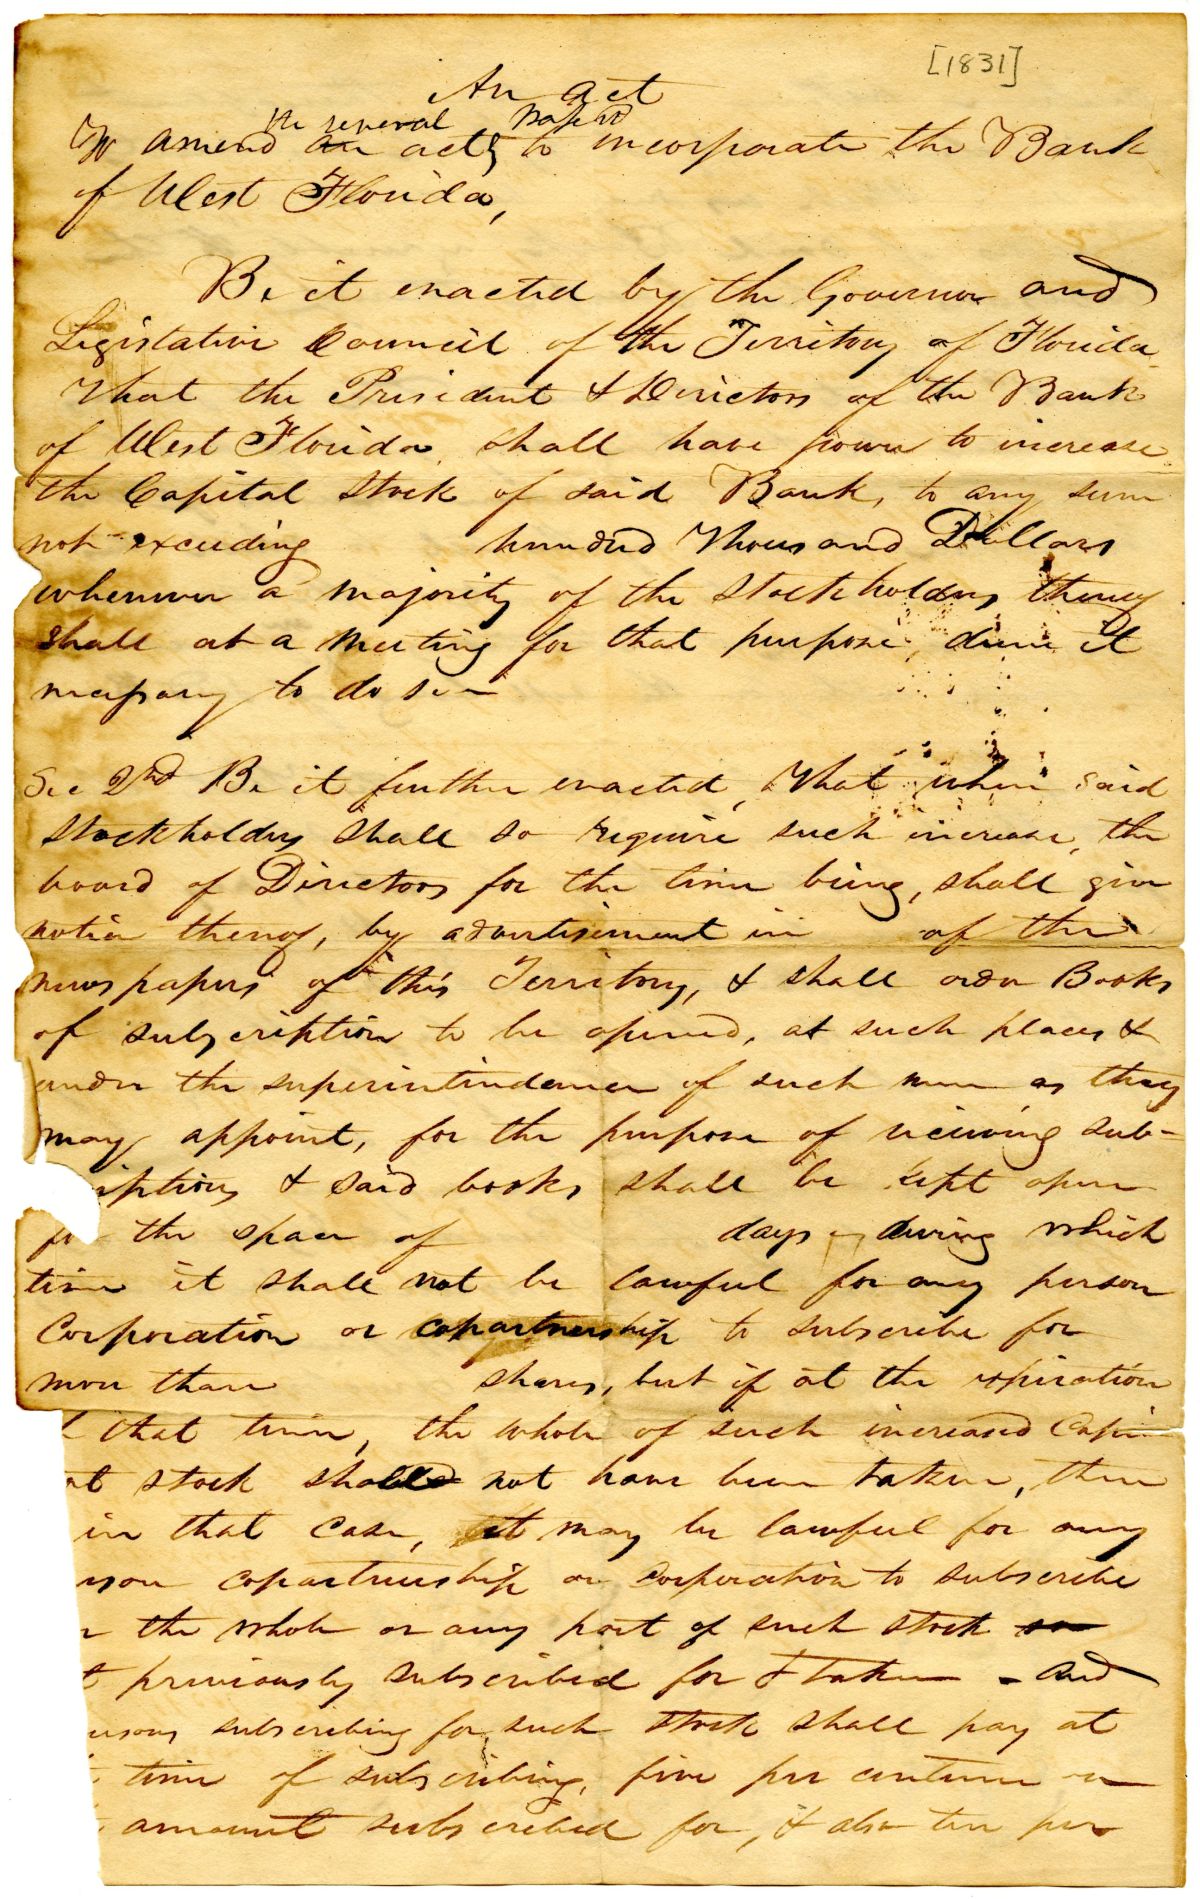 [1831]
An act
the several passed
To amend an acts to incorporate the Bank
of West Florida,
Be it enacted by the Governor and
Legislative Council of the Territory of Florida.
That the President & Directors of the Bank
of West Florida, shall have power to increase
the Capital Stock of said Bank, to any sum
not exceeding hundred Thousand Dollars
whenever a majority of the Stockholders thereof
shall at a meeting for that purpose, deem it
necessary to do so
Sec 2nd Be it further enacted, That when said
Stockholders shall so require such increase, the
board of Directors for the time being, shall give
notice thereof, by advertisement in of the
newspapers of this Territory, & shall order Books
of subscription to be opened, at such places &
under the superintendence of such men as they
may appoint, for the purpose of receiving sub-
iptions & said books shall be kept open
for the space of days during which
time it shall not be lawful for any person
Corporation or copartnership to subscribe for
more than shares, but if at the expiration
that time, the whole of such increased Capi
al stock should not have been taken, then
in that case, it may be lawful for any
rson copartnership or Corporation to subscribe
r the whole or any part of such stock so
t previously subscribed for & taken - and
ersons subscribing for such stock shall pay at
time of subscribing, five per centum on
amount subscribed for, & also ten per